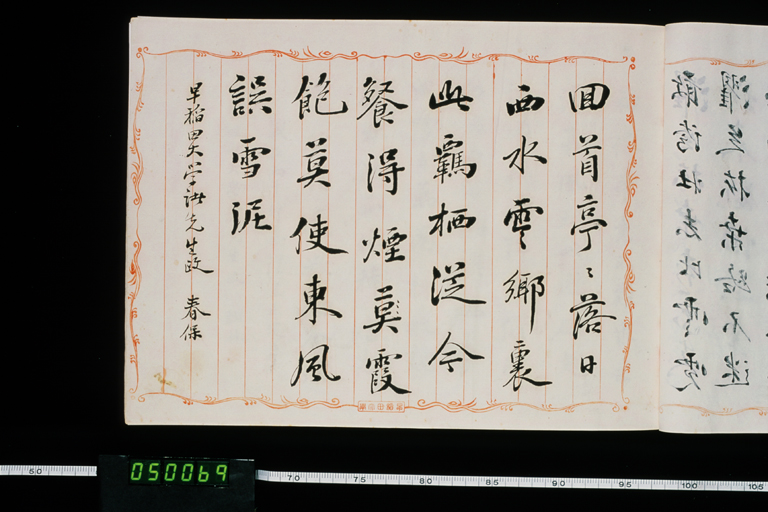 回首亭々落日
西水雲郷裏
此羈栖従今
餐得煙莫霞
飽莫使東風
誤雪泥
早稲田大学諸先生政 春保
050069
5.0
7.0
7.5
8.0
8.5
9.0
9.5
10.0
10.5